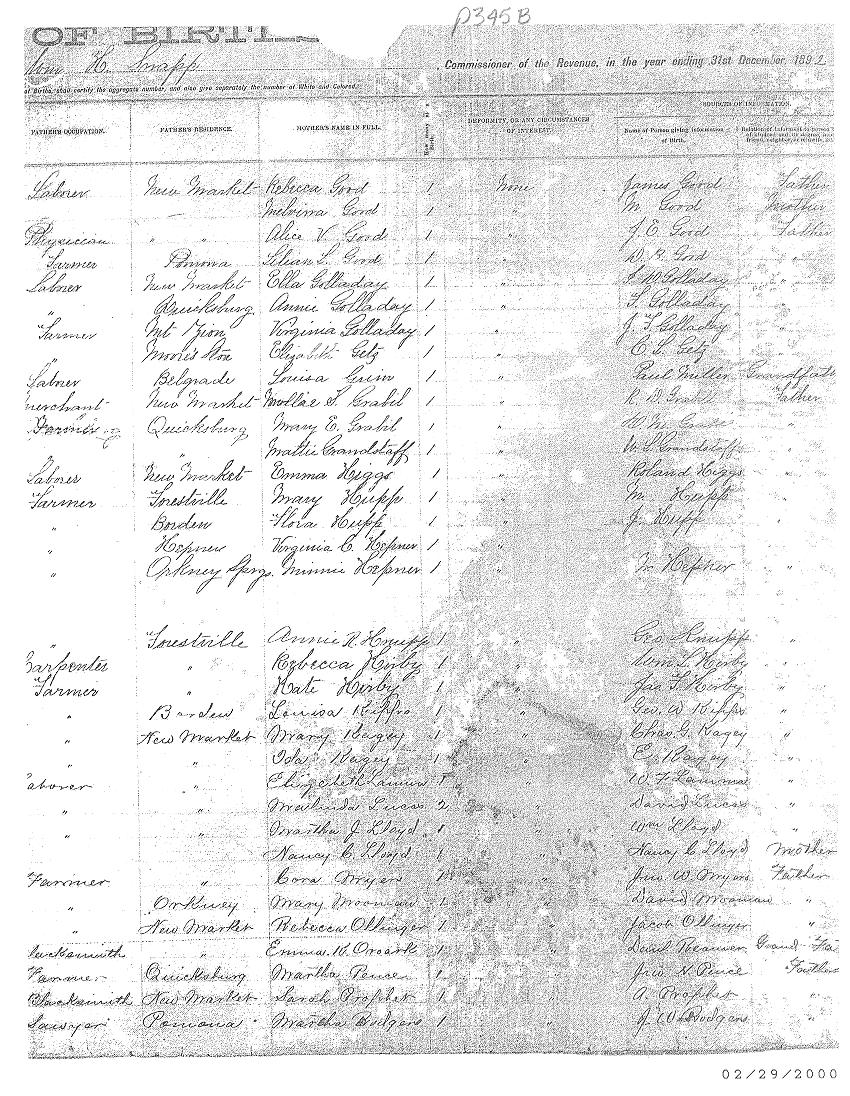 p345B
OF BIRTH
H. Snapp Commissioner of the Revenue, in the year ending 31st December, 1892
of Births, shall certify the aggregate number, and also give separately the number of White and Colored.
SOURCES OF INFORMATION.
FATHER'S OCCUPATION. FATHER'S RESIDENCE. MOTHER'S NAME IN FULL. DEFORMITY, OR ANY CIRCUMSTANCES OF INTEREST. Name of Person giving information of Birth.
Laborer New Market Rebecca Good 1 None James Good Father
— Melvina Good 1 " M Good Mother
Physician " " Alice V. Good 1 " J. E. Good Father
Farmer Pomona Lilean L. Good 1 " Good "
Laborer New Market Ella Golladay 1 " Golladay "
" Quicksburg Annie Golladay 1 " Golladay "
Farmer Mt Zion Virginia Golladay 1 " J. Golladay "
" Moores Store Elizabeth Getz 1 " C. L. Getz "
Labner Belgrade Louisa Grim 1 " Paul Miller Grandfath
Merchant New Market Mollae S. Grabil 1 " Father
Farmer Quicksburg Mary E. Grabl 1 "
" Mattie Grandstaff 1 " W. L. Grandstaff "
Laborer New Market Emma Higgs 1 " Roland Higgs "
Farmer Forestville Mary Hupp 1 " M Hupp "
" Borden Flora Hupp 1 " J. Hupp "
" Hepner Virginia C. Hepner 1 "
" Orkney Sprgs. Minnie Hepner 1 " M Hepner "
" Forestville Annie R. Knupp 1 " Geo Knupp "
Carpenter " Rebecca Kirby 1 " Wm L. Kirby "
Farmer " Kate Kirby 1 " Jas F. Kirby "
" Borden Louisa Kipps 1 " Geo. W Kipps "
" New Market Mary Kagey 1 " Chas. G. Kagey "
" " Ida Kagey 1 E. Kagey "
Laborer " Elizabeth Lamma 1 W F Lamma "
" " Malinda Lucas 2 " David Lucas "
" " Martha J. Lloyd 1 " Wm Lloyd "
Nancy C. Lloyd 1 " Nancy C Lloyd Mother
Farmer " Cora Myers 1 " Jno W. Myers Father
" Orkney Mary Mooman 1 " David Mooman "
" New Market Rebecca Ollinger 1 " Jacob Ollinger "
Blacksmith " Emma K. Oroark 1 " Grand Fa
Farmer Quicksburg Martha Pence 1 " Jno N. Pence Father
Blacksmith New Market Sarah Prophet 1 " A. Prophet "
Sawyer Pomona Martha Rodgers 1 " J. W. Rodgers "
02/29/2000